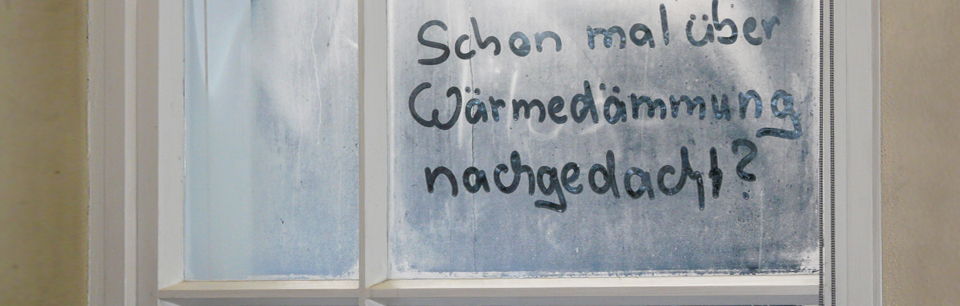 Schon mal über
Wärmedämmung
nachgedacht?